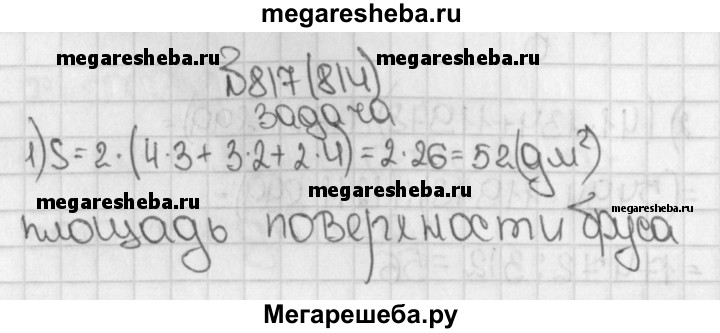 megaresheba.ru
megaresheba.ru megaresheba.ru
№817(814)
задача
1) S = 2·(4·3 + 3·2 + 2·4) = 2·26 = 52(дм²)
megaresheba.ru megaresheba.ru
площадь поверхности бруса
Мегарешеба.ру